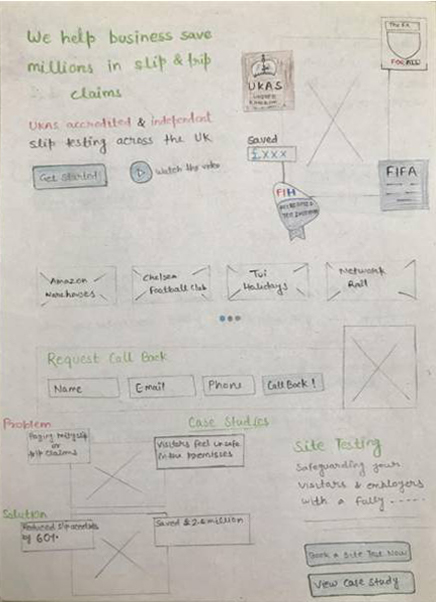 We help business save
millions in slip & trip
claims
UKAS accredited & independent
slip testing across the UK
Get Started!
Watch the video
UKAS
The FA
FOR ALL
Saved
£XXX
FIH
FIFA
Amazon
Warehouses
Chelsea
Football Club
Tui
Holidays
Network
Rail
Request Call Back
Name
Email
Phone
Call Back !
Problem
Case Studies
Paying many slip
or
trip claims
Visitors feel unsafe
in the premisses
Solution
Reduced slip accidents
by 60%
Saved £2.6 million
Site Testing
Safeguarding your
visitors & employers
with a fully .....
Book a Site Test Now
View Case Study